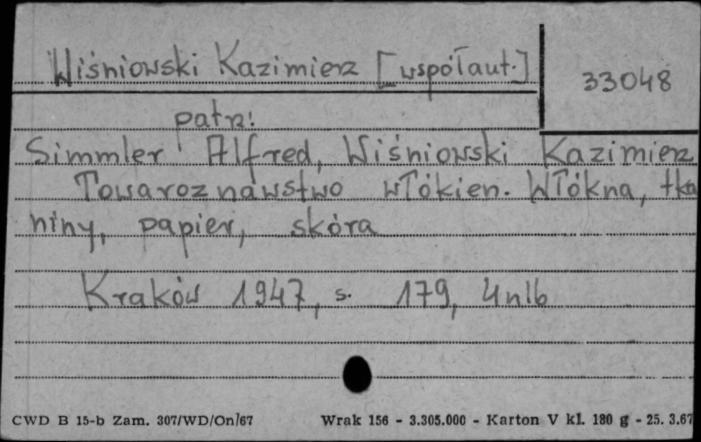 Wiśniowski Kazimierz [współaut.]
33048
patrz:
Simmler Alfred, Wiśniowski Kazimierz
Towaroznawstwo włókien. Włókna, tka
niny, papier, skóra
Kraków 1947, s. 179, 4nlb
CWD B 15-b Zam. 307/WD/On/67 Wrak 156 - 3.305.000 - Karton V kl. 180 g - 25. 3.67